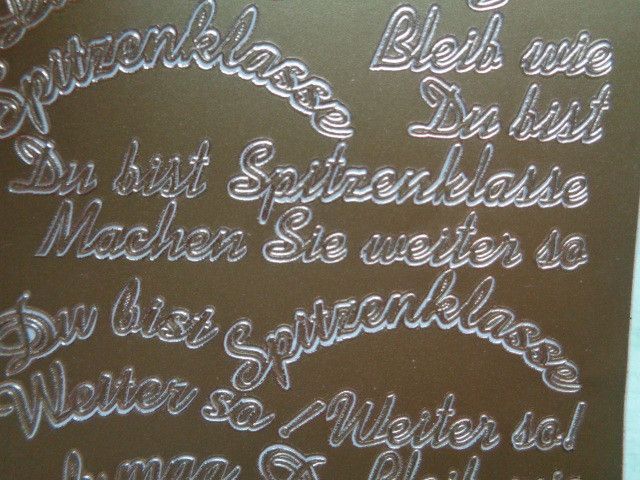 Spitzenklasse
Bleib wie
Du bist
Du bist Spitzenklasse
Machen Sie weiter so
Du bist Spitzenklasse
Weiter so ! Weiter so!
Bleib wie